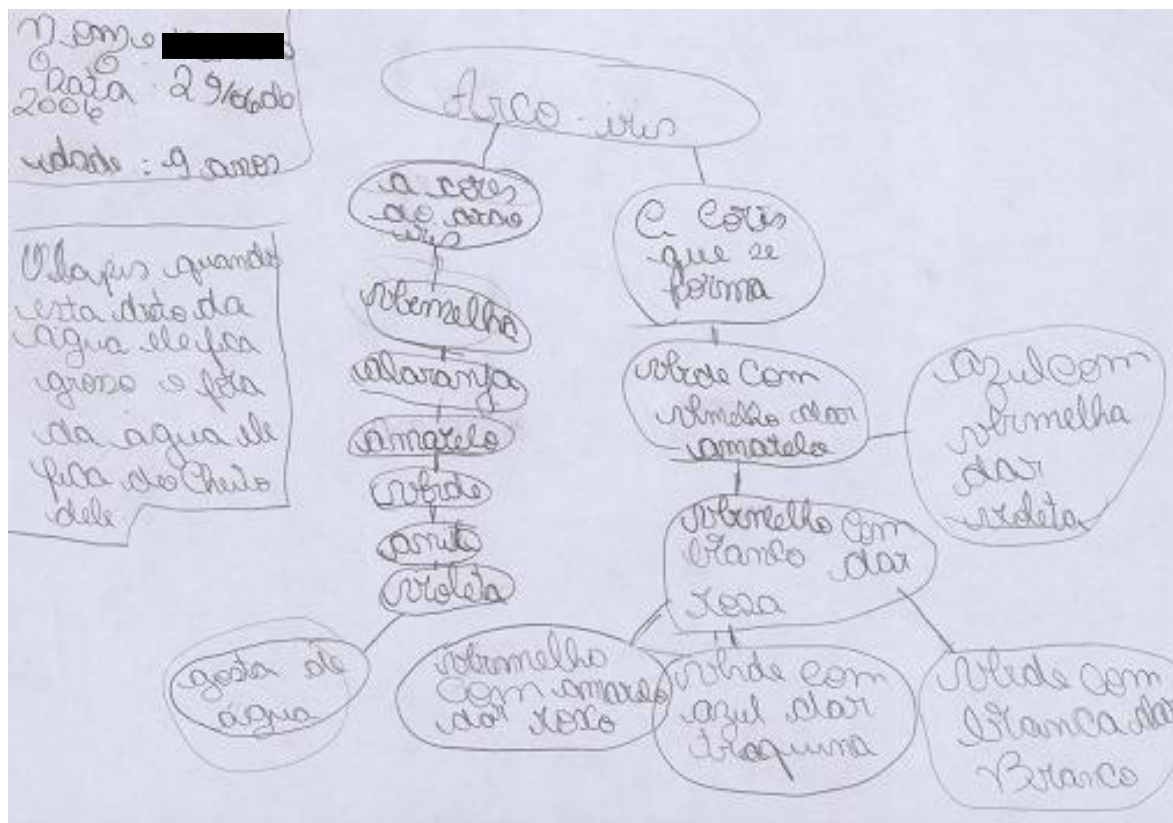 Nome:
Data: 29/06 do
2006
idade: 9 anos
O lapis quando
esta deto da
agua ele fica
groso e fora
da agua ele
fica do Cheito
dele
Arco-iris
a cores
do arco
iris
vermelha
alaranja
amarelo
verde
anito
violeta
gosta de
água
C Coris
que se
forma
verde Com
vermelho dar
amarelo
azul com
vermelha
dar
violeta
vermelho com
branco dar
rosa
vermelho
com amarelo
dar roxo
verde com
azul dar
traquina
verde com
branca da
Branco